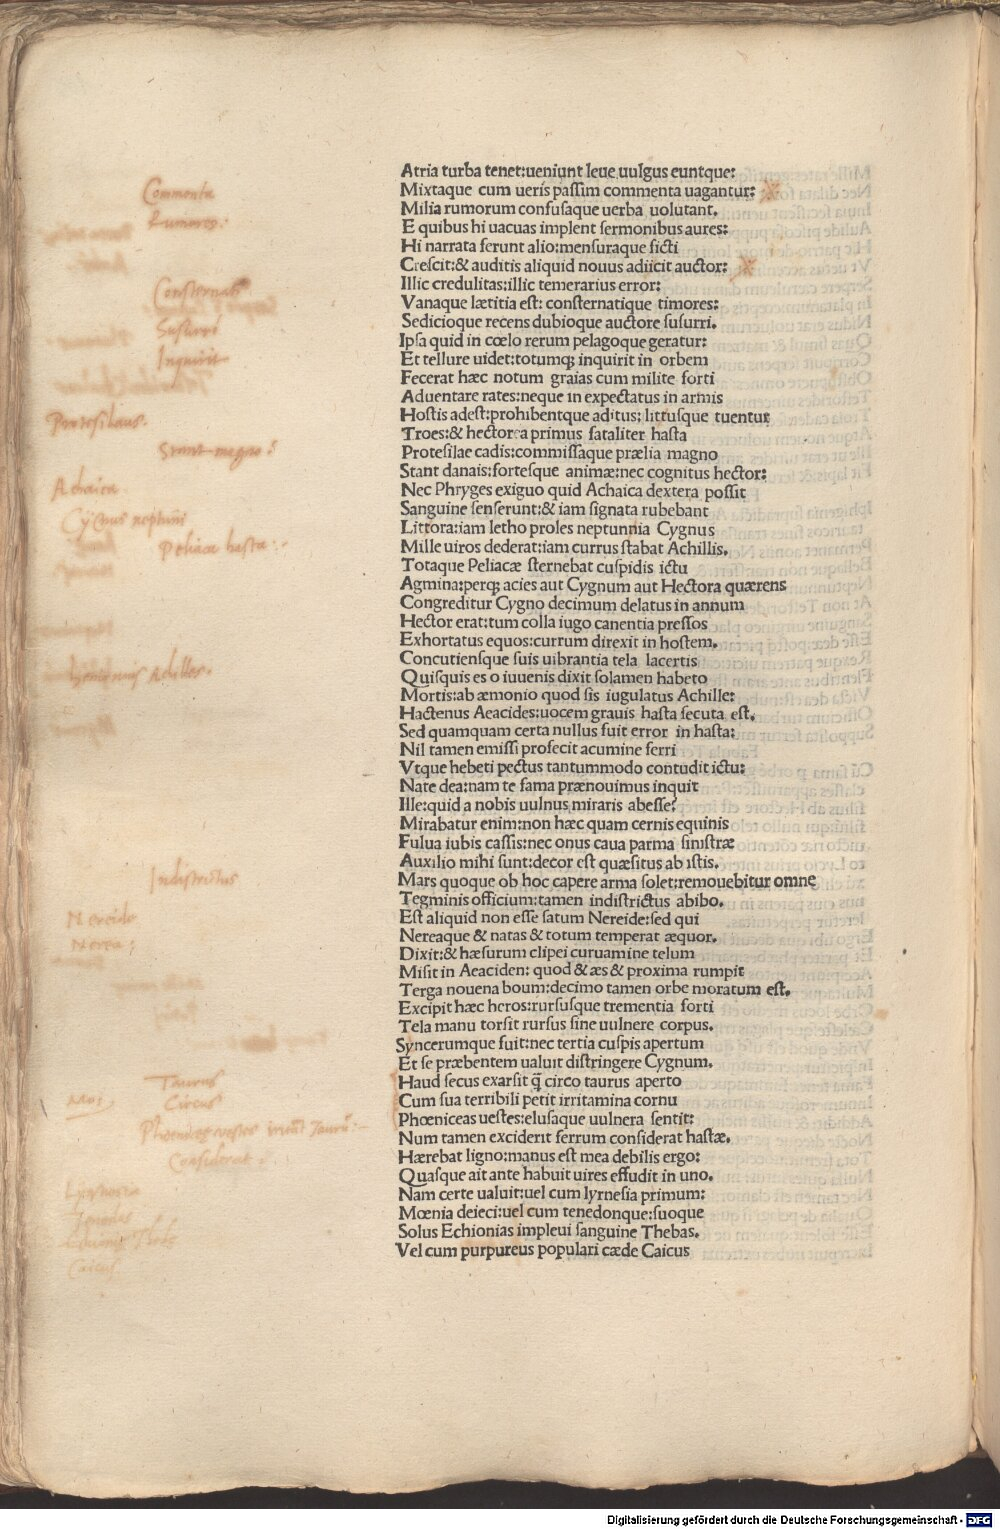 Atria turba tenet:ueniunt leue uulgus euntque:
Mixtaque cum ueris passim commenta uagantur:
Milia rumorum confusaque uerba uolutant.
E quibus hi uacuas implent sermonibus aures:
Hi narrata ferunt alio:mensuraque ficti
Crescit:& auditis aliquid nouus adiicit auctor:
Illic credulitas:illic temerarius error:
Vanaque lætitia est: consternatique timores:
Sedicioque recens dubioque auctore susurri.
Ipsa quid in cœlo rerum pelagoque geratur:
Et tellure uidet:totumqꝫ inquirit in orbem
Fecerat hæc notum graias cum milite forti
Aduentare rates:neque in expectatus in armis
Hostis adest:prohibentque aditus: littusque tuentur
Troes:& hectorea primus fataliter hasta
Protesilae cadis:commissaque prælia magno
Stant danais:fortesque animæ:nec cognitus hector:
Nec Phryges exiguo quid Achaica dextera possit
Sanguine senserunt:& iam signata rubebant
Littora:iam letho proles neptunnia Cygnus
Mille uiros dederat:iam currus stabat Achillis.
Totaque Peliacæ sternebat cuspidis ictu
Agmina:perqꝫ acies aut Cygnum aut Hectora quærens
Congreditur Cygno decimum delatus in annum
Hector erat:tum colla iugo canentia pressos
Exhortatus equos:currum direxit in hostem.
Concutiensque suis uibrantia tela lacertis
Quisquis es o iuuenis dixit solamen habeto
Mortis:ab æmonio quod sis iugulatus Achille:
Hactenus Aeacides:uocem grauis hasta secuta est.
Sed quamquam certa nullus fuit error in hasta:
Nil tamen emissi profecit acumine ferri
Vtque hebeti pectus tantummodo contudit ictu:
Nate dea:nam te fama prænouimus inquit
Ille:quid a nobis uulnus miraris abesse?
Mirabatur enim:non hæc quam cernis equinis
Fulua iubis cassis:nec onus caua parma sinistræ
Auxilio mihi sunt:decor est quæsitus ab istis.
Mars quoque ob hoc capere arma solet:remouebitur omne
Tegminis officium:tamen indistrictus abibo.
Est aliquid non esse satum Nereide:sed qui
Nereaque & natas & totum temperat æquor.
Dixit:& hæsurum clipei curuamine telum
Misit in Aeaciden: quod & æs & proxima rumpit
Terga nouena boum:decimo tamen orbe moratum est.
Excipit hæc heros:rursusque trementia forti
Tela manu torsit rursus sine uulnere corpus.
Syncerumque fuit:nec tertia cuspis apertum
Et se præbentem ualuit distringere Cygnum.
Haud secus exarsit q̄ circo taurus aperto
Cum sua terribili petit irritamina cornu
Phœniceas uestes:elusaque uulnera sentit:
Num tamen exciderit ferrum considerat hastæ.
Hærebat ligno:manus est mea debilis ergo:
Quasque ait ante habuit uires effudit in uno.
Nam certe ualuit:uel cum lyrnesia primum:
Mœnia deieci:uel cum tenedonque:suoque
Solus Echionias impleui sanguine Thebas.
Vel cum purpureus populari cæde Caicus
Commenta
Rumores.
Susurri
Inquirit
Protesilaus.
Achaica
Cycnus neptuni
Peliaca hasta
Achilles.
Indistrictus
Nereide
Nerea:
Taurus
Circus
Considerat.
Lyrnesia
Tenedos
Caicus
Digitalisierung gefördert durch die Deutsche Forschungsgemeinschaft - DFG